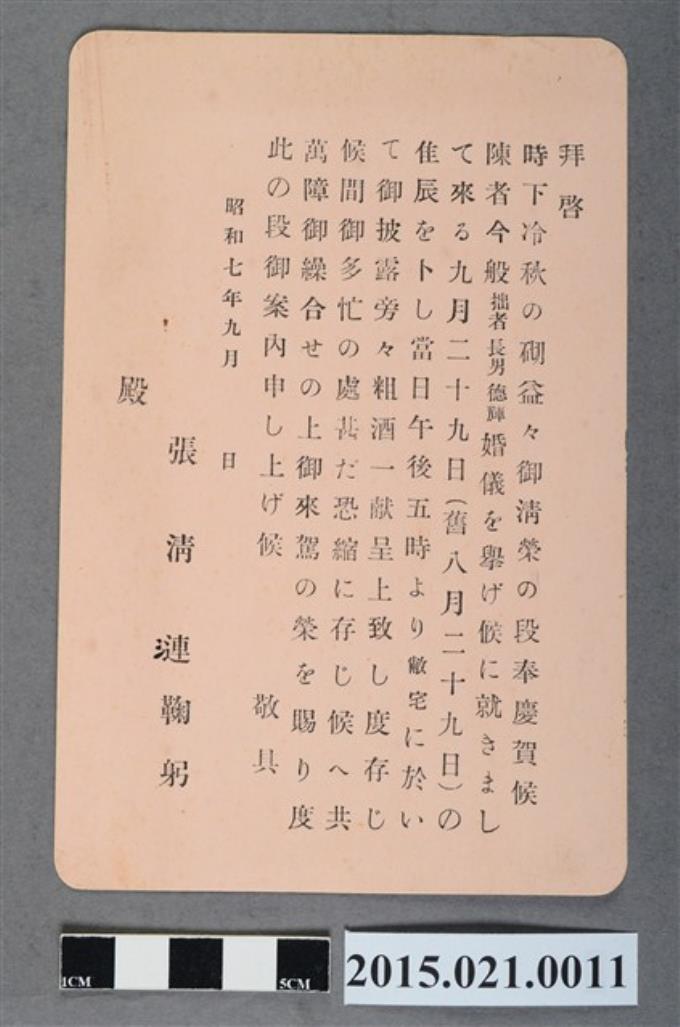 拜啓
時下冷秋の砌益々御淸榮の段奉慶賀候
陳者今般拙者長男德輝婚儀を擧げ候に就きまし
て來る九月二十九日(舊八月二十九日)の
佳辰を卜し當日午後五時より敝宅に於い
て御披露旁々粗酒一献呈上致し度存じ
候間御多忙の處甚だ恐縮に存じ候へ共
萬障御繰合せの上御來駕の榮を賜り度
此の段御案內申し上げ候
敬具
昭和七年九月 日
張淸漣鞠躬
殿
1CM
5CM
2015.021.0011